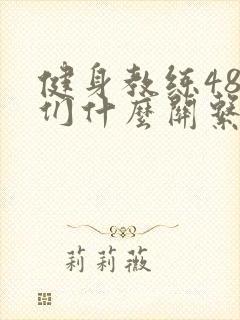 健身教练48
们什麼關繫
莉莉薇